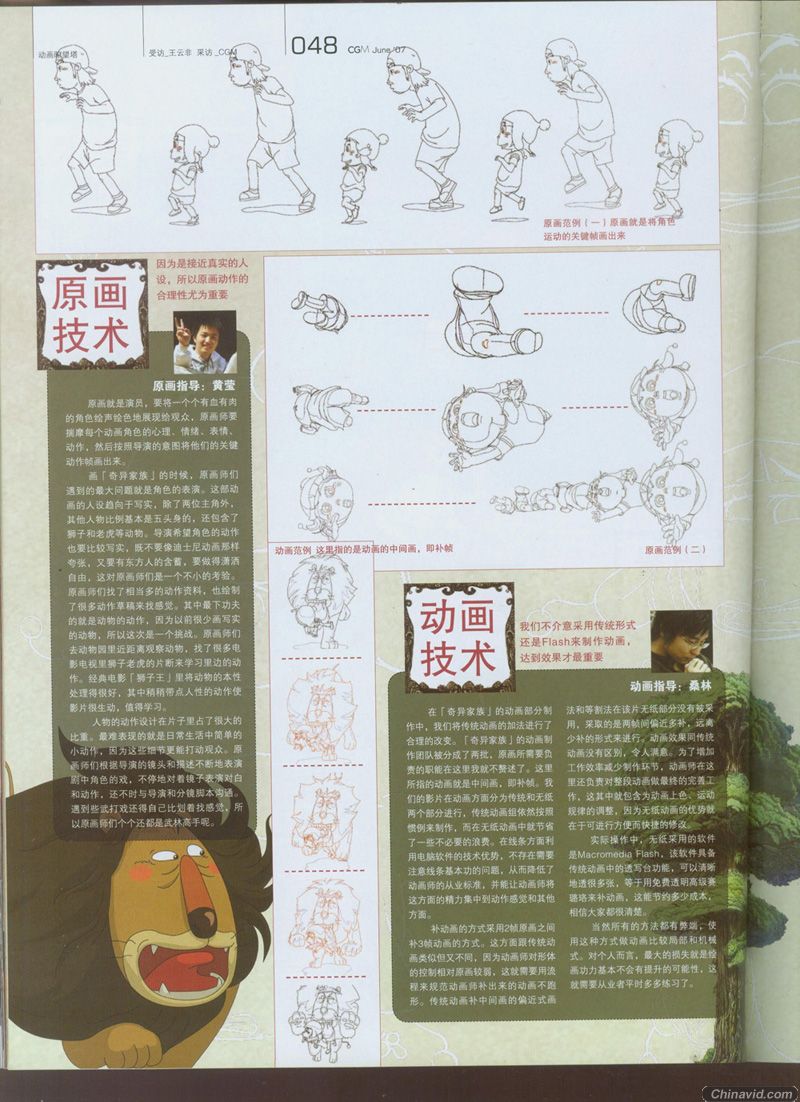 动画瞭望塔
受访_王云非 采访_CGM
048 CGM June '07
原画范例（一）原画就是将角色
运动的关键帧画出来
原画
技术
因为是接近真实的人
设，所以原画动作的
合理性尤为重要
原画指导：黄莹
原画就是演员，要将一个个有血有肉
的角色绘声绘色地展现给观众，原画师要
揣摩每个动画角色的心理、情绪、表情、
动作，然后按照导演的意图将他们的关键
动作帧画出来。
画「奇异家族」的时候，原画师们
遇到的最大问题就是角色的表演。这部动
画的人设趋向于写实，除了两位主角外，
其他人物比例基本是五头身的，还包含了
狮子和老虎等动物。导演希望角色的动作
也要比较写实，既不要像迪士尼动画那样
夸张，又要有东方人的含蓄，要做得潇洒
自由，这对原画师们是一个不小的考验。
原画师们找了相当多的动作资料，也绘制
了很多动作草稿来找感觉。其中最下功夫
的就是动物的动作，因为以前很少画写实
的动物，所以这次是一个挑战。原画师们
去动物园里近距离观察动物，找了很多电
影电视里狮子老虎的片断来学习里边的动
作。经典电影「狮子王」里将动物的本性
处理得很好，其中稍稍带点人性的动作使
影片很生动，值得学习。
人物的动作设计在片子里占了很大的
比重。最难表现的就是日常生活中简单的
小动作，因为这些细节更能打动观众。原
画师们根据导演的镜头和描述不断地表演
剧中角色的戏，不停地对着镜子表演对白
和动作，还不时与导演和分镜脚本沟通。
遇到些武打戏还得自己比划着找感觉，所
以原画师们个个还都是武林高手呢。
动画范例 这里指的是动画的中间画，即补帧
原画范例（二）
动画
技术
我们不介意采用传统形式
还是Flash来制作动画，
达到效果才最重要
动画指导：桑林
在「奇异家族」的动画部分制
作中，我们将传统动画的加法进行了
合理的改变。「奇异家族」的动画制
作团队被分成了两批，原画所需要负
责的职能在这里我就不赘述了。这里
所指的动画就是中间画，即补帧。我
们的影片在动画方面分为传统和无纸
两个部分进行，传统动画组依然按照
惯例来制作，而在无纸动画中就节省
了一些不必要的浪费。在线条方面利
用电脑软件的技术优势，不存在需要
注意线条基本功的问题，从而降低了
动画师的从业标准，并能让动画师将
这方面的精力集中到动作感觉和其他
方面。
补动画的方式采用2帧原画之间
补3帧动画的方式。这方面跟传统动
画类似但又不同，因为动画师对形体
的控制相对原画较弱，这就需要用流
程来规范动画师补出来的动画不跑
形。传统动画补中间画的偏近式画
法和等割法在该片无纸部分没有被采
用，采取的是两帧间偏近多补，远离
少补的形式来进行。动画效果同传统
动画没有区别，令人满意。为了增加
工作效率减少制作环节，动画师在这
里还负责对整段动画做最终的完善工
作，这其中就包含为动画上色、运动
规律的调整，因为无纸动画的优势就
在于可进行方便而快捷的修改。
实际操作中，无纸采用的软件
是Macromedia Flash，该软件具备
传统动画中的透写台功能，可以清晰
地透很多张，等于用免费透明高级赛
璐珞来补动画，这能节约多少成本，
相信大家都很清楚。
当然所有的方法都有弊端，使
用这种方式做动画比较局部和机械
式。对个人而言，最大的损失就是绘
画功力基本不会有提升的可能性，这
就需要从业者平时多多练习了。
Chinavid.com